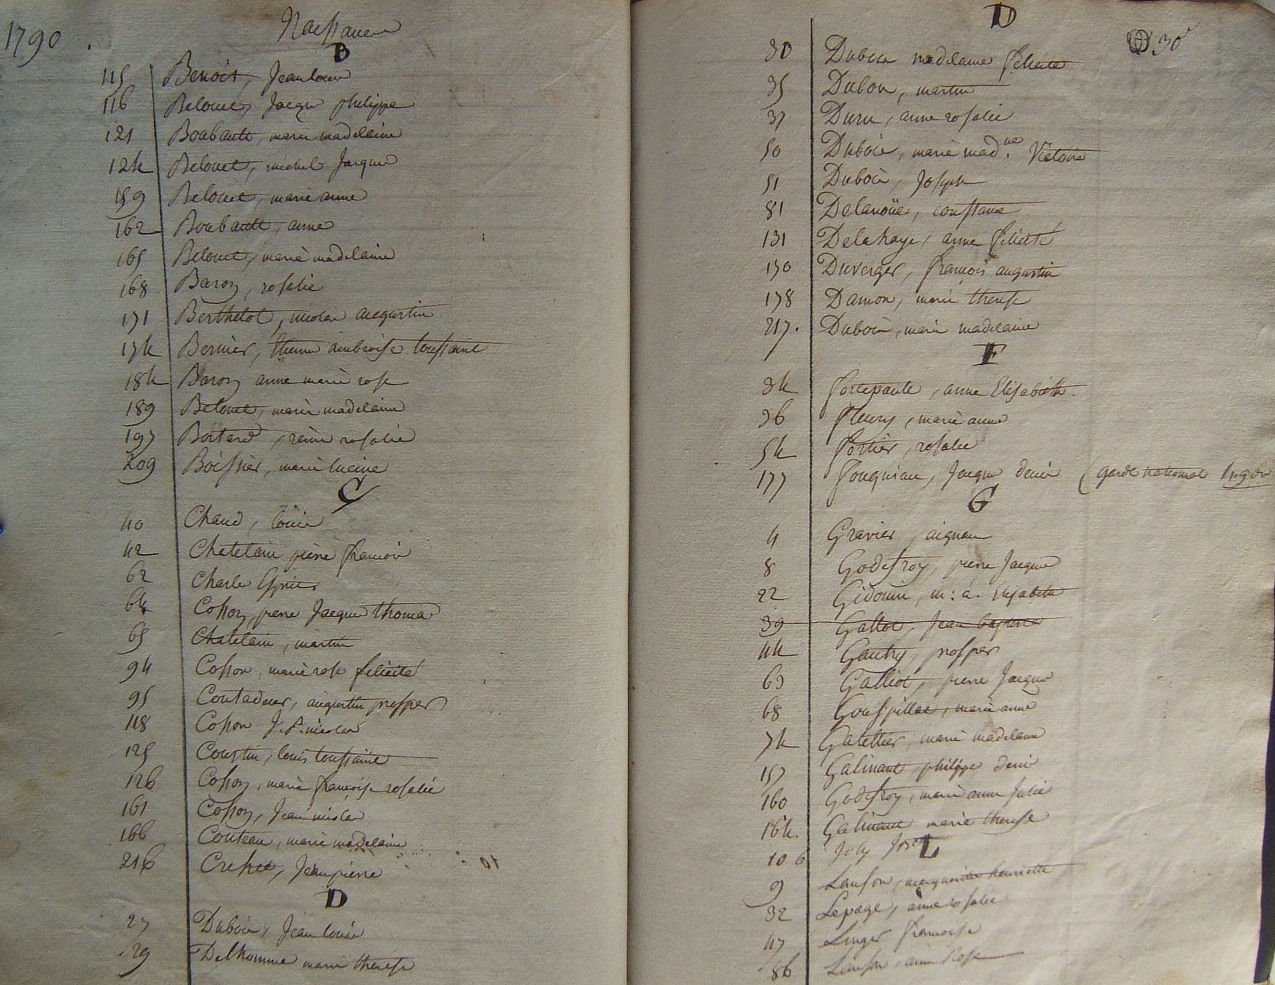 1790.
Naissance
B
115 Benoit, Jean louis
116 Belouet, Jacque philippe
121 Boubault, marie madelaine
124 Belouet, michel Jacque
159 Belouet, marie anne
162 Boubault, anne
165 Belouet, marie madelaine
168 Baron, rosalie
171 Berthelot, nicolas augustin
174 Bernier, ambroise toussaint
184 Baron anne marie rose
189 Belouet, marie madelaine
197 Boitard, reine rosalie
209 Boissier, marie lucine
C
40 Chaud, Louis
42 Chatelain pierre françois
62 Charle Esprit
64 Cosson, pierre Jacque thomas
65 Chatelain, martin
94 Cosson, marie rose felicité
95 Coutadeur, augustin prosper
118 Cosson J. P. nicolas
125 Courtin, louis toussaint
126 Cosson, marie françoise rosalie
161 Cosson, Jean nicolas
166 Couteau, marie madelaine
216 Jean pierre
D
27 Dubois, Jean louis
29 Delhomme marie therese
D
30
30 Dubois madelaine felicité
35 Dubois, martin
37 Duru, anne rosalie
50 Dubois, marie mad.ne Victoire
51 Dubois, Joseph
81 Delanoüe, constance
131 Delahaye, anne felicité
150 Duverger, françois augustin
178 Damon, marie therese
217. Dubois, marie madelaine
F
34 Fortepaule, anne Elisabeth.
36 Fleury, marie anne
54 Fortier, rosalie
177 Fouqniau, Jacque denis (garde national
G
4 Gravier, aignan
8 Godefroy, pierre Jacque
22 Gidouin, m: a. Elisabeth
39 Gallot, Jean baptiste
44 Gautry, prosper
63 Galliot, pierre Jacque
68 Goupillot, marie anne
74 Gatellier, marie madelaine
157 Galinant philippe denis
160 Godefroy, marie anne Julie
164. Galinant marie therese
106 Joly
L
9 Lanson, marguerite henriette
32 Lepage, anne rosalie
47 Linger françoise
86 Lanson, anne Rose